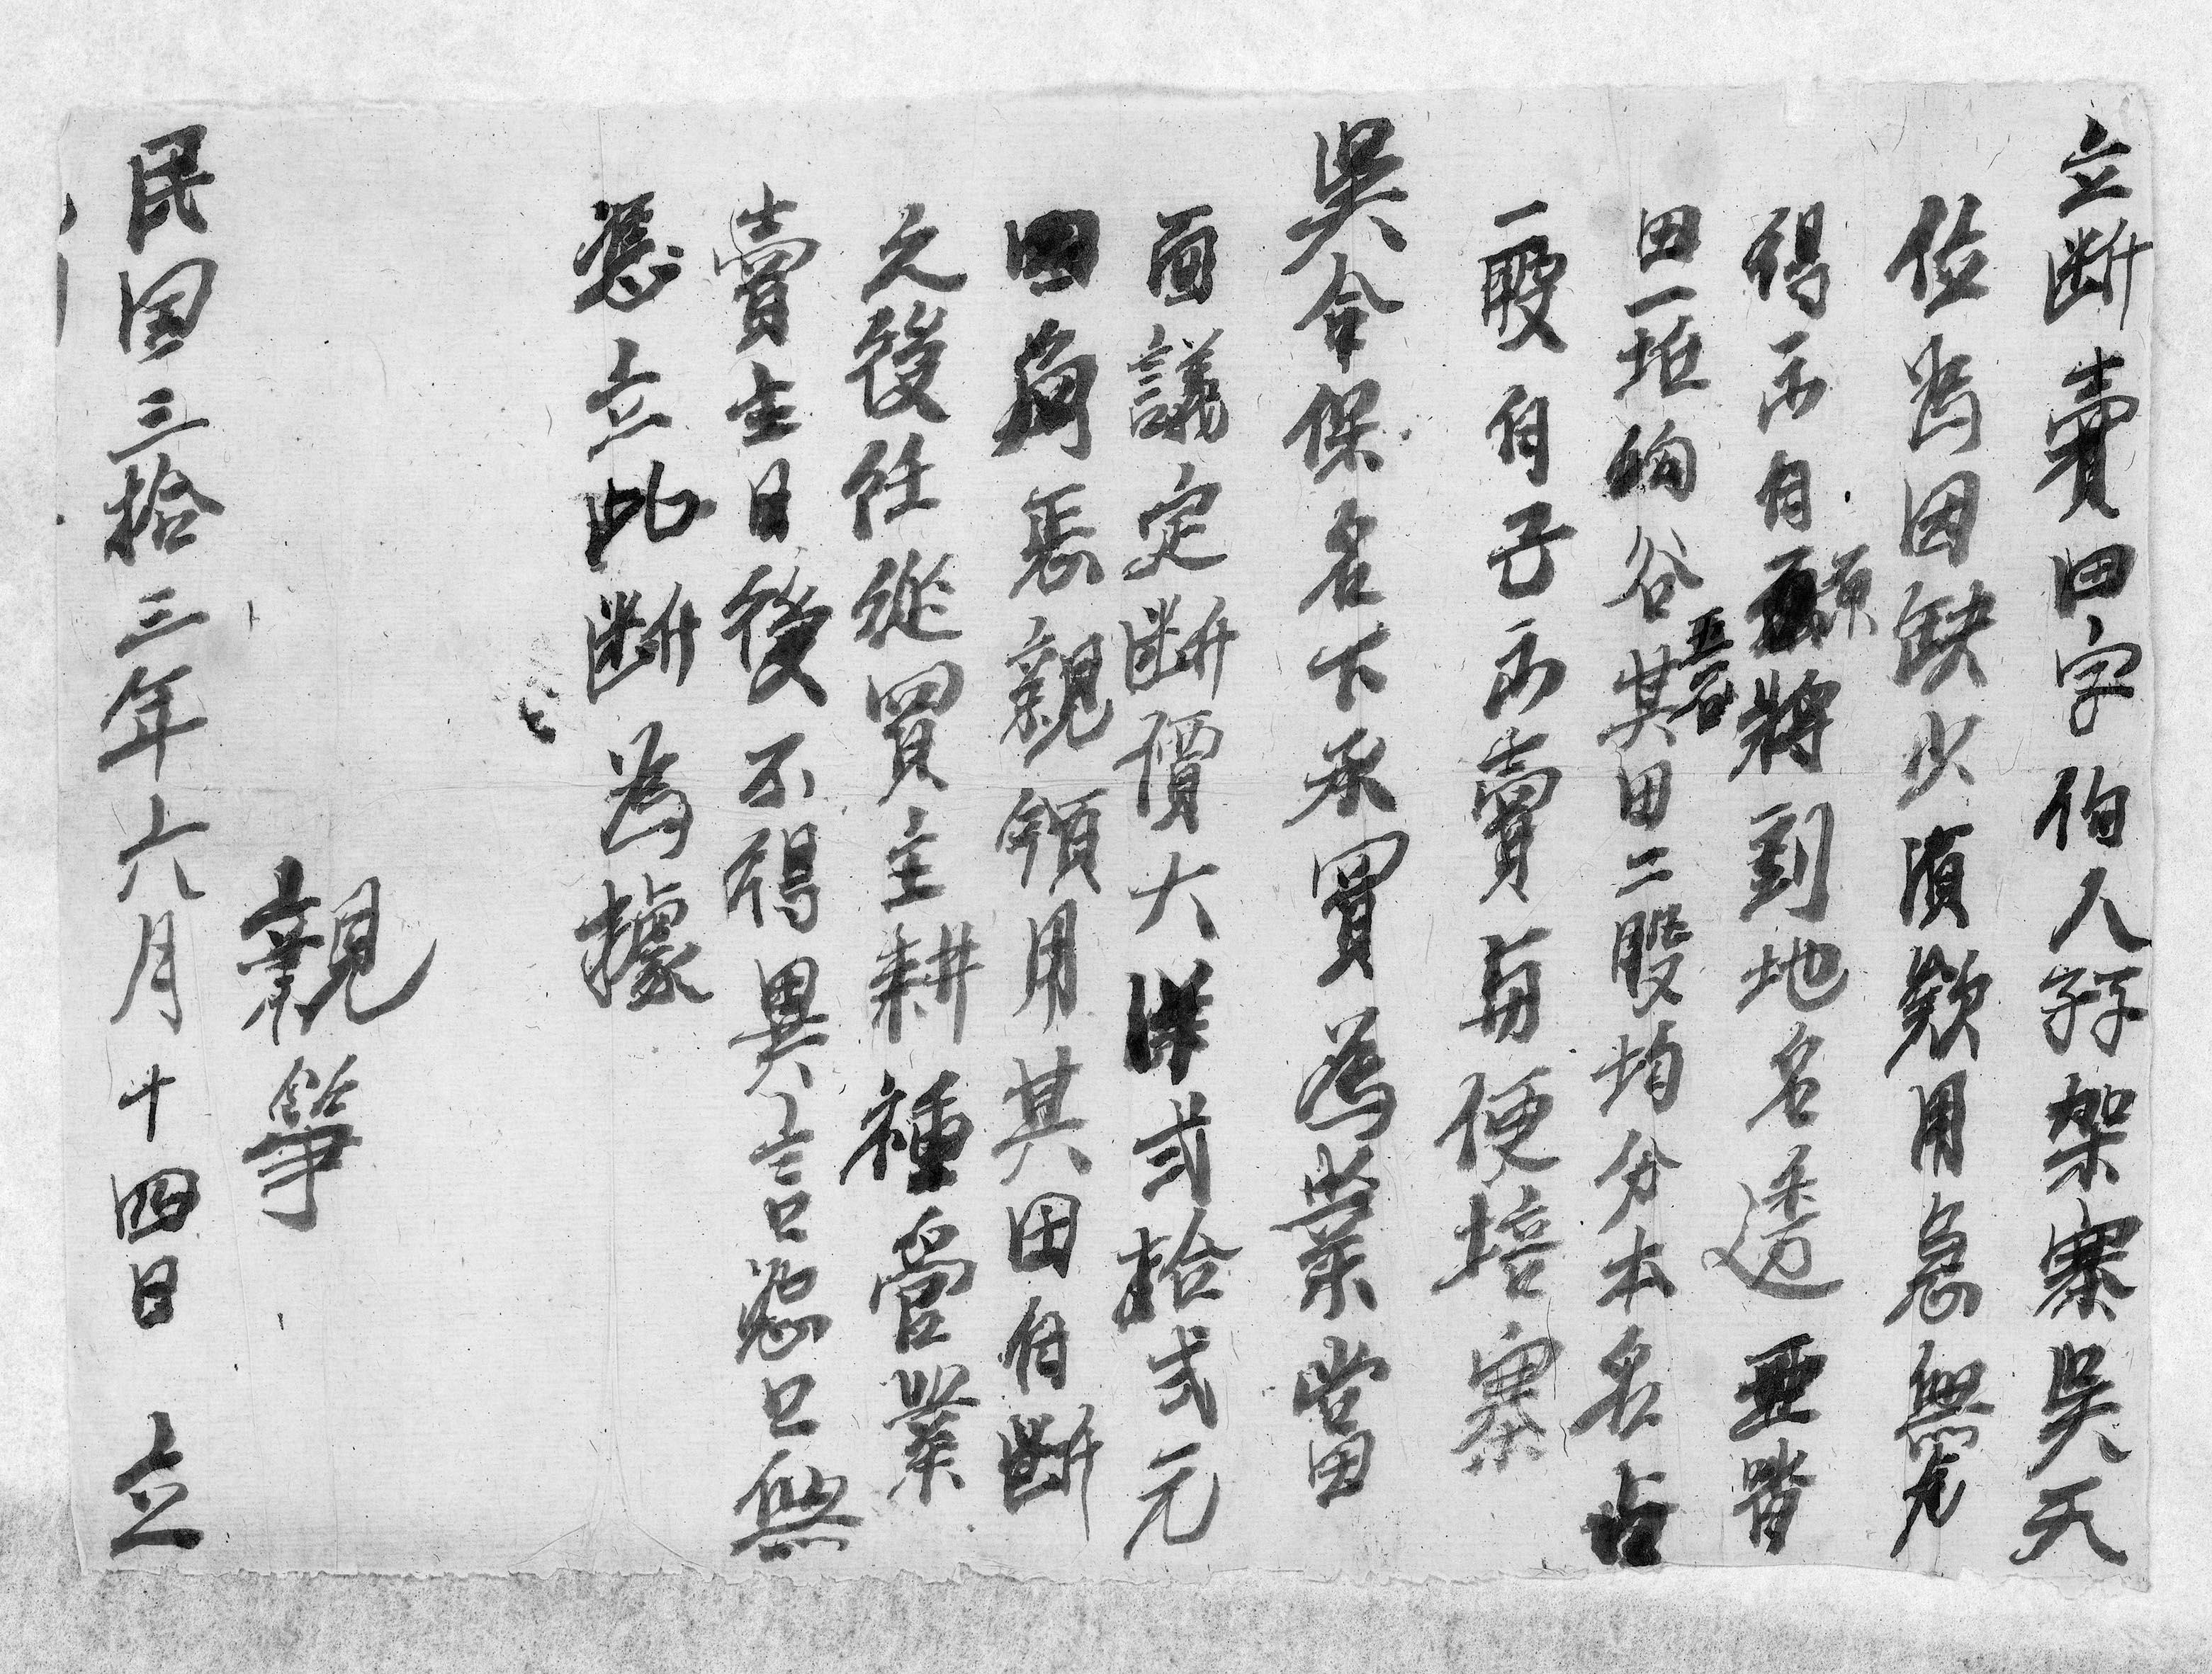 立断賣田字伯人孖架寨吴天
位為因缺少湏欵用急無尧
得不自願將到地名透亜腊
田一坵約谷五石其田二股均分本名占
一股自己而賣與便培寨
吴合保名下承買為業當田
面議定断價大洋弍拾弍元
四角悉親領用其田自断
之後任從買主耕種管業
賣主日後不得異言恐口無
憑立此断為據
親筆
民国三拾三年六月十四日 立